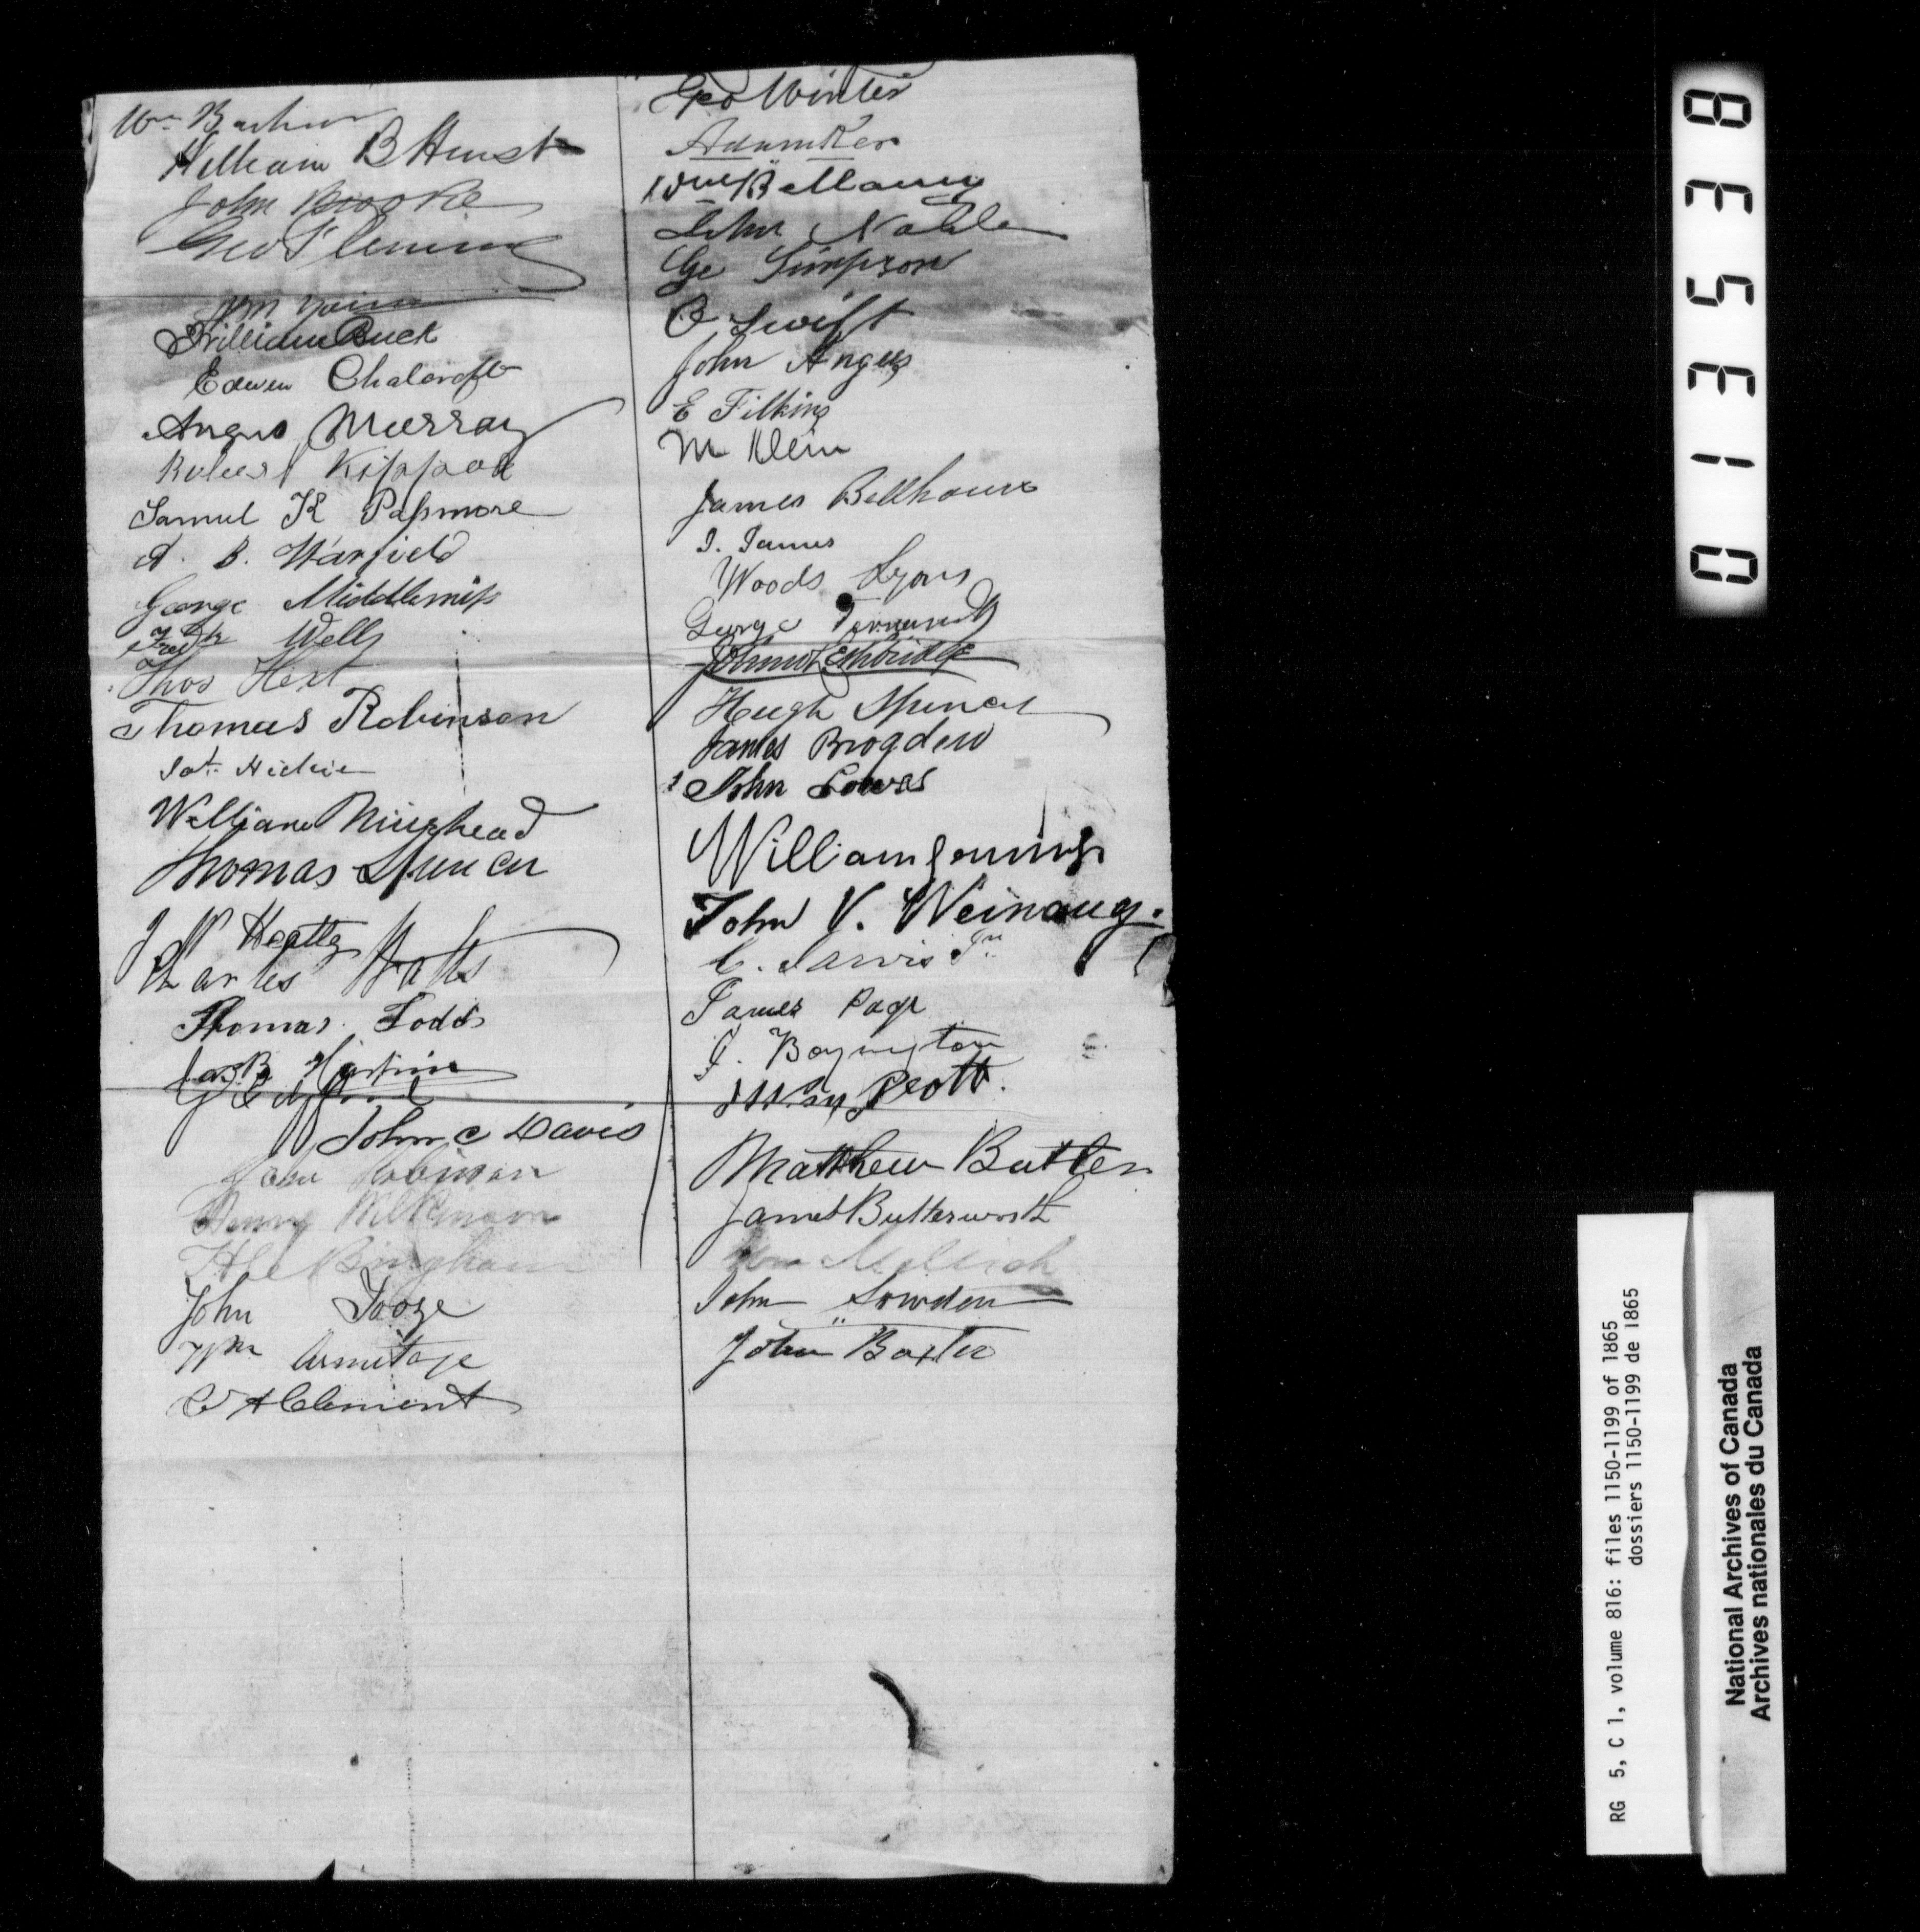 Wm
William B Hurst
John Brooke
Geo Fleming
Wm
William Buck
Edwin Chalcraft
Angus Murray
Robert Kippax
Samuel K Passmore
A. B. Warfield
George Middlemiss
Fredk Wells
Thos Hext
Thomas Robinson
Jas. Hickie
William Muirhead
Thomas Spencer
J P Heattz
Charles Watts
Thomas Todd
Jas B
John C Davis
John Robinson
Henry Wilkinson
Bingham
John Tooze
Wm Armitage
C A Clement
Geo Winter
Adam Ker
Wm Bellamy
John Noble
Ge Simpson
O Swift
John Angus
E Filkins
M Klein
James Bellhouse
J. James
Woods Lyons
George
Hugh Spencer
James Brogden
John Lowes
William Jennings
John V. Weinaug.
C. Jarvis Jr
James Page
J. Boyington
Scott.
Matthew Butler
James Butterworth
Wm
John Sowden
John Baxter
8
3
5
3
1
0
RG 5, C 1, volume 816: files 1150-1199 of 1865
dossiers 1150-1199 de 1865
National Archives of Canada
Archives nationales du Canada